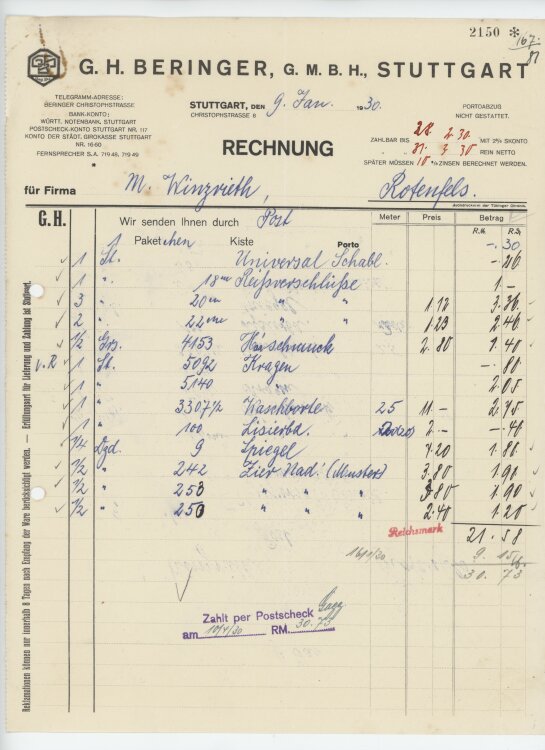 2150 *
167.
81
G. H. BERINGER, G. M. B. H., STUTTGART
TELEGRAMM-ADRESSE:
BERINGER CHRISTOPHSTRASSE
BANK-KONTO:
WÜRTT. NOTENBANK, STUTTGART
POSTSCHECK-KONTO STUTTGART NR. 117
KONTO DER STÄDT. GIROKASSE STUTTGART
NR. 1660
FERNSPRECHER S.A. 719 48, 719 49
*
STUTTGART, DEN 9. Jan. 1930.
CHRISTOPHSTRASSE 8
PORTOABZUG
NICHT GESTATTET.
RECHNUNG
ZAHLBAR BIS 2. 30 MIT 2% SKONTO
31. 3. 30 REIN NETTO
SPÄTER MÜSSEN 10 % ZINSEN BERECHNET WERDEN.
für Firma M. Winzrieth, Rotenfels.
G.H. Wir senden Ihnen durch Post Meter Preis Betrag
R.M. R.₰
1 Paketchen Kiste Porto -. 30
1 St. Universal Schabl. -. 26
1 " 18 cm Reißverschlüße 1 -
3 " 20 cm " " 1.12 3.36
2 " 22 cm " " 1.23 2.46
1/2 Grs. 4153 H'schmuck 2.80 1.40
v.R 1 St. 5092 Kragen -. 80
1 " 5140 " 2.05
1 " 3307 1/2 Waschborte 25 11.- 2.75
1 " 100 Lisierbd. 2.- -. 40
1/4 Dzd. 9 Spiegel 7.20 1.80
1/2 " 242 Zier Nad. (Muster) 3.80 1.90
1/2 " 253 " " " 3.80 1.90
1/2 " 250 " " " 2.40 1.20
Reichsmark 21.58
9. 15
30. 73
Zahlt per Postscheck
am 10/4/30 RM. 30.73
Reklamationen können nur innerhalb 8 Tagen nach Empfang der Ware berücksichtigt werden. — Erfüllungsort für Lieferung und Zahlung ist Stuttgart.